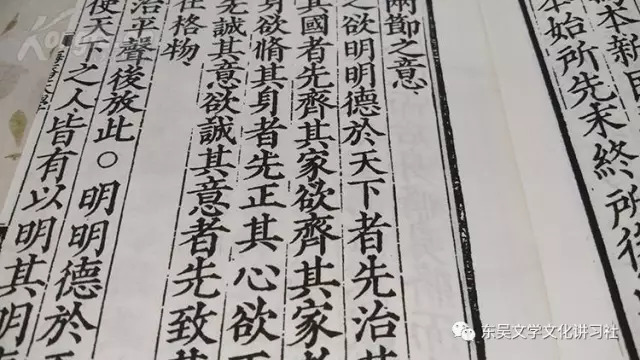 本新
本始所先末終所後
兩節之意
之欲明明德於天下者先治其
其國者先齊其家欲齊其家
身欲脩其身者先正其心欲正
先誠其意欲誠其意者先致其
在格物
治平聲後放此○明明德於
使天下之人皆有以明其明
东吴文学文化讲习社